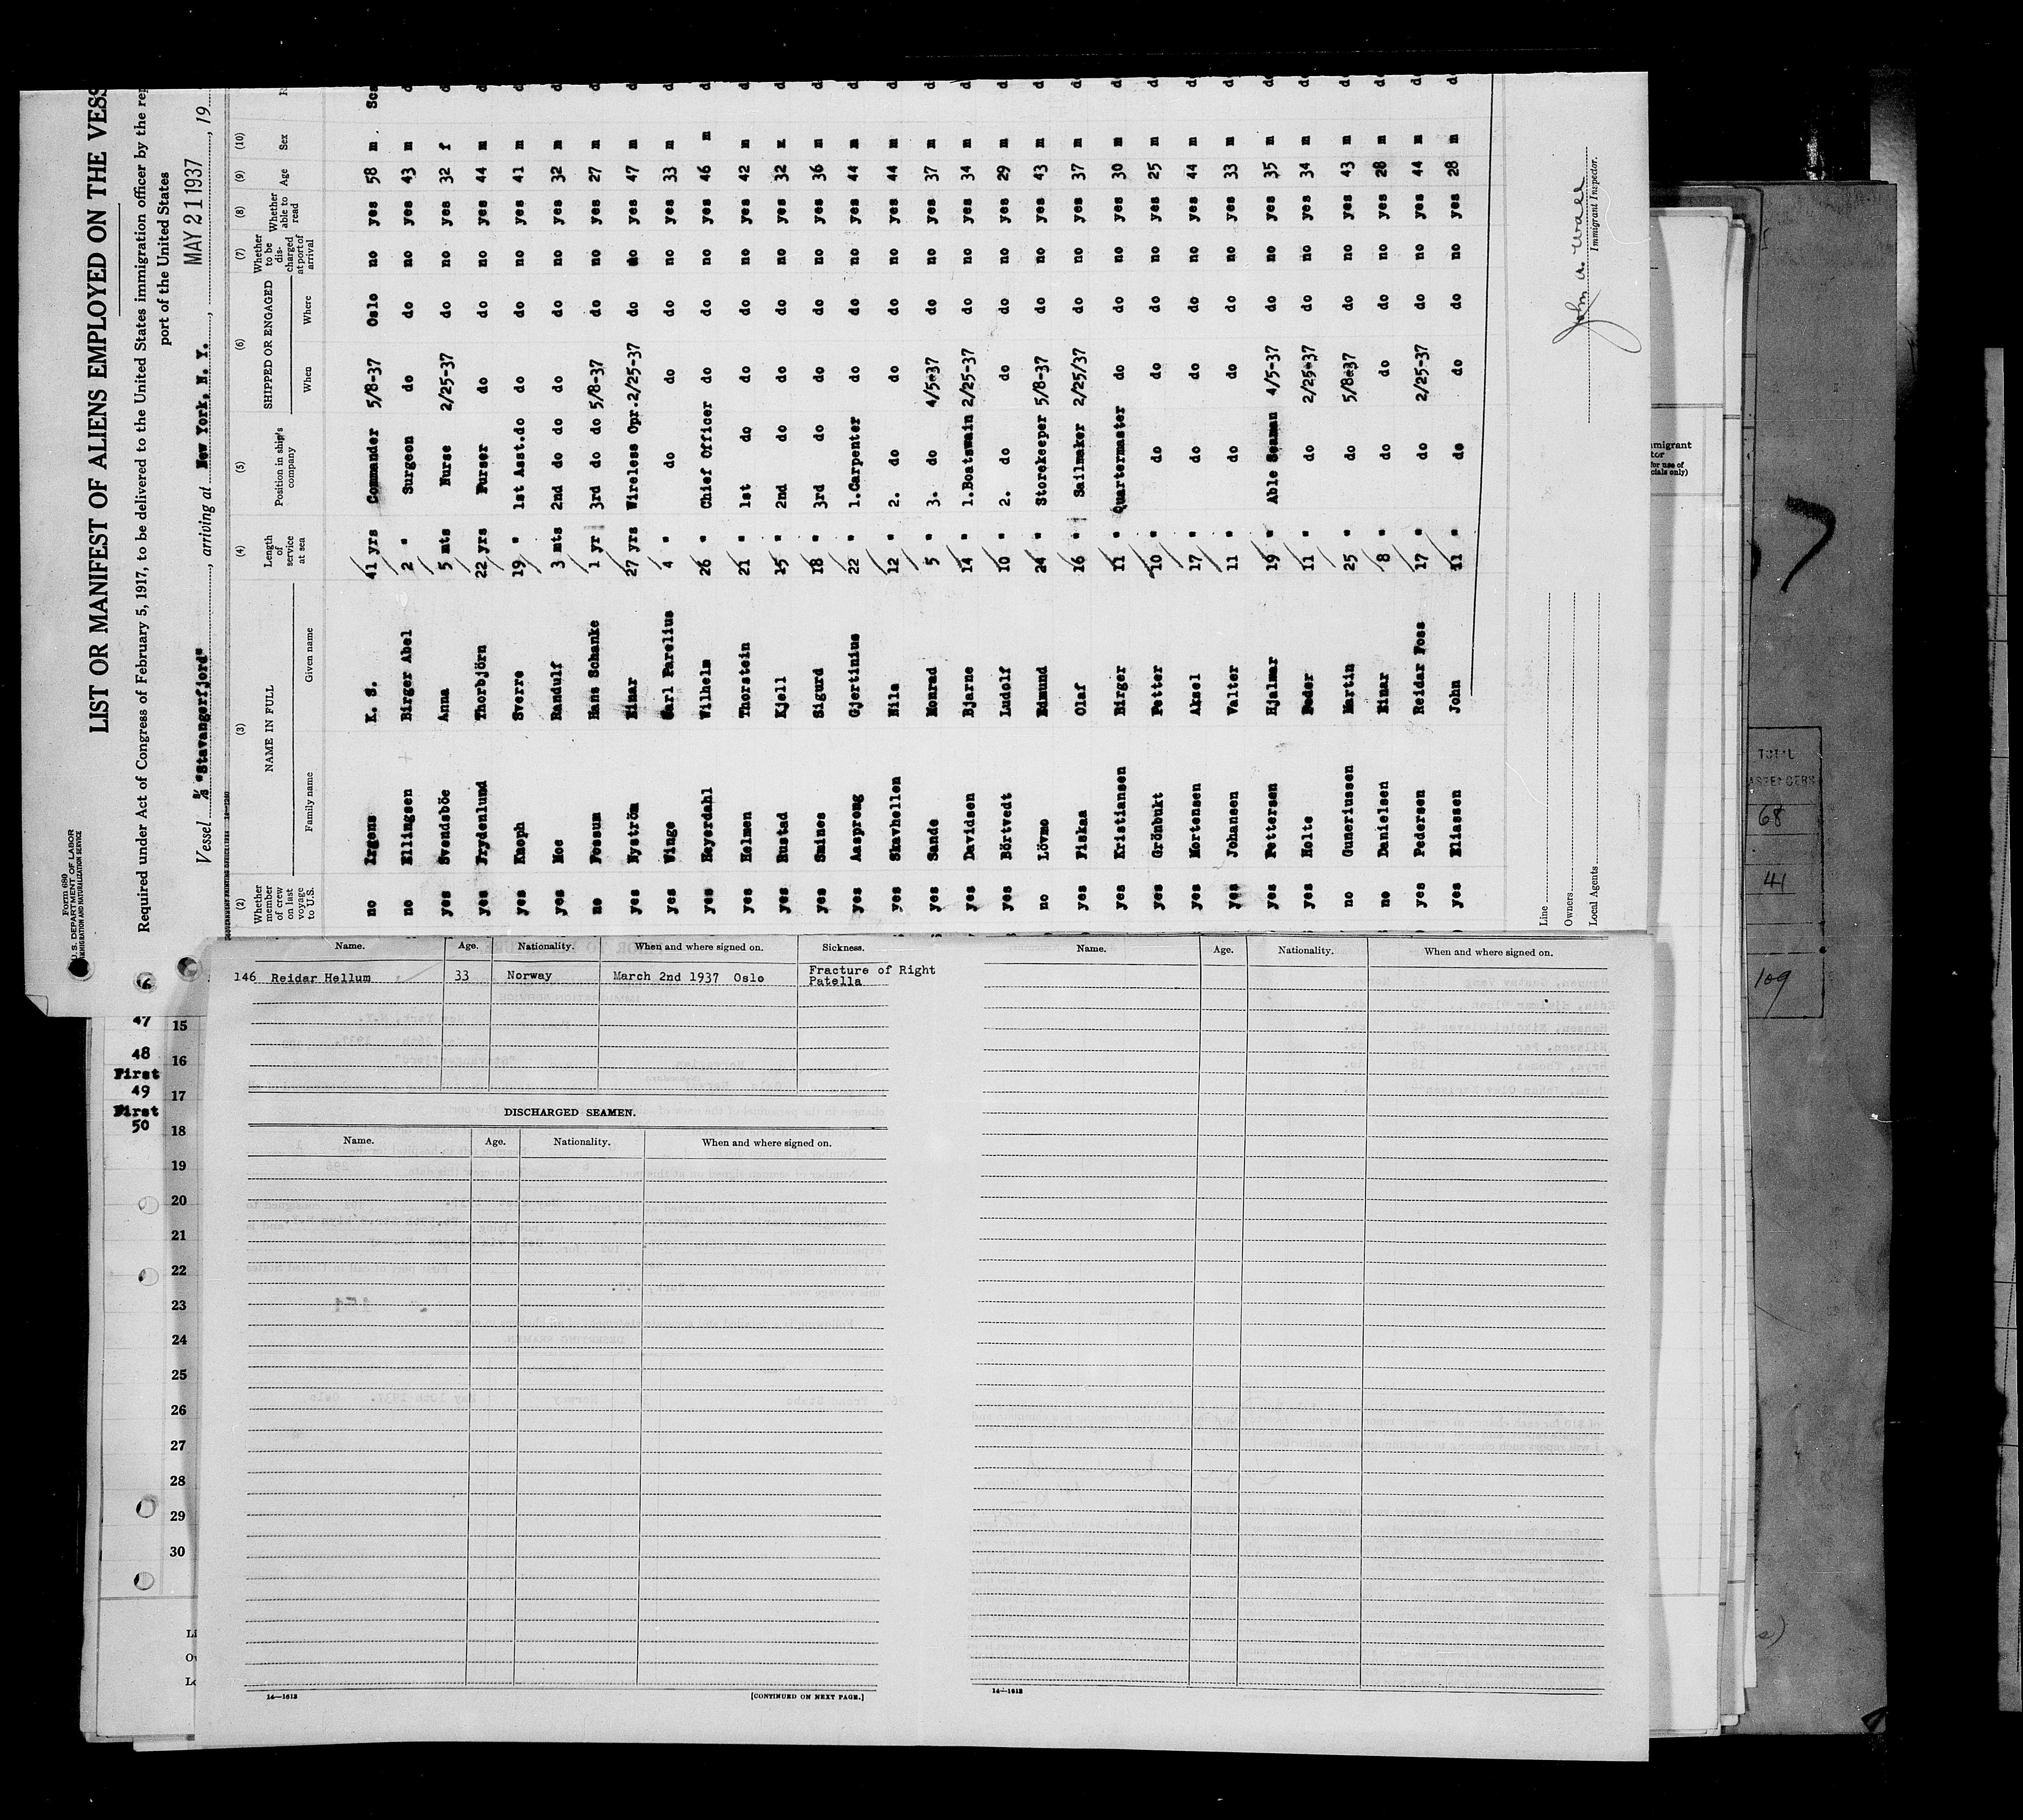 Form 680
U. S. DEPARTMENT OF LABOR
IMMIGRATION AND NATURALIZATION SERVICE
LIST OR MANIFEST OF ALIENS EMPLOYED ON THE VESS
Required under Act of Congress of February 5, 1917, to be delivered to the United States immigration officer by the rep
port of the United States
Vessel S/S "Stavangerfjord", arriving at New York, N. Y., MAY 21 1937, 19
(2) (3) (4) (5) (6) (7) (8) (9) (10)
Whether member of crew on last voyage to U.S. NAME IN FULL Family name Given name Length of service at sea Position in ship's company SHIPPED OR ENGAGED When Where Whether to be discharged at port of arrival Whether able to read Age Sex
no Irgens K. S. 41 yrs Commander 5/8-37 Oslo no yes 58 m Sca
no Ellingsen Birger Abel 2 " Surgeon do do no yes 43 m d
yes Svendsböe Anna 5 mts Nurse 2/25-37 do no yes 32 f d
yes Frydenlund Thorbjörn 22 yrs Purser do do no yes 44 m d
yes Knoph Sverre 19 " 1st Asst.do do do no yes 41 m d
yes Moe Randulf 3 mts 2nd do do do do no yes 32 m d
no Fossum Hans Schanke 1 yr 3rd do do 5/8-37 do no yes 27 m d
yes Nyström Einar 27 yrs Wireless Opr. 2/25-37 do no yes 47 m d
yes Winge Carl Parelius 4 " do do do no yes 33 m d
yes Heyerdahl Wilhelm 26 " Chief Officer do do no yes 46 m d
yes Helmen Thorstein 21 " 1st do do do no yes 42 m d
yes Rustad Kjell 15 " 2nd do do do no yes 32 m d
yes Smines Sigurd 18 " 3rd do do do no yes 36 m d
yes Aasprong Gjertinius 22 " 1.Carpenter do do no yes 44 m d
yes Skavhellen Nils 12 " 2. do do do no yes 44 m d
yes Sande Monrad 5 " 3. do 4/5-37 do no yes 37 m d
yes Davidsen Bjarne 14 " 1.Boatswain 2/25-37 do no yes 34 m d
yes Börtvedt Ludolf 10 " 2. do do do no yes 29 m d
no Lövmo Edmund 24 " Storekeeper 5/8-37 do no yes 43 m d
yes Fiskaa Olaf 16 " Sailmaker 2/25/37 do no yes 37 m d
yes Kristiansen Birger 11 " Quartermaster do do no yes 30 m d
yes Grönbukt Petter 10 " do do do no yes 25 m d
yes Mortensen Aksel 17 " do do do no yes 44 m d
yes Johansen Valter 11 " do do do no yes 33 m d
yes Pettersen Hjalmar 19 " Able Seaman 4/5-37 do no yes 35 m d
yes Holte Peder 11 " do 2/25-37 do no yes 34 m d
no Guneriussen Martin 25 " do 5/8-37 do no yes 43 m d
no Danielsen Einar 8 " do do do no yes 28 m d
yes Pedersen Reidar Foss 17 " do 2/25-37 do no yes 44 m d
yes Eliassen John 11 " do do do no yes 28 m d
Line
Owners
Local Agents
John A.
Immigrant Inspector.
Name. Age. Nationality. When and where signed on. Sickness.
146 Reidar Hellum 33 Norway March 2nd 1937 Oslo Fracture of Right
Patella
DISCHARGED SEAMEN.
Name. Age. Nationality. When and where signed on.
14—1613
[CONTINUED ON NEXT PAGE.]
Name. Age. Nationality. When and where signed on.
14—1613
47
48
First
49
First
50
15
16
17
18
19
20
21
22
23
24
25
26
27
28
29
30
TOTAL
68
41
109
7